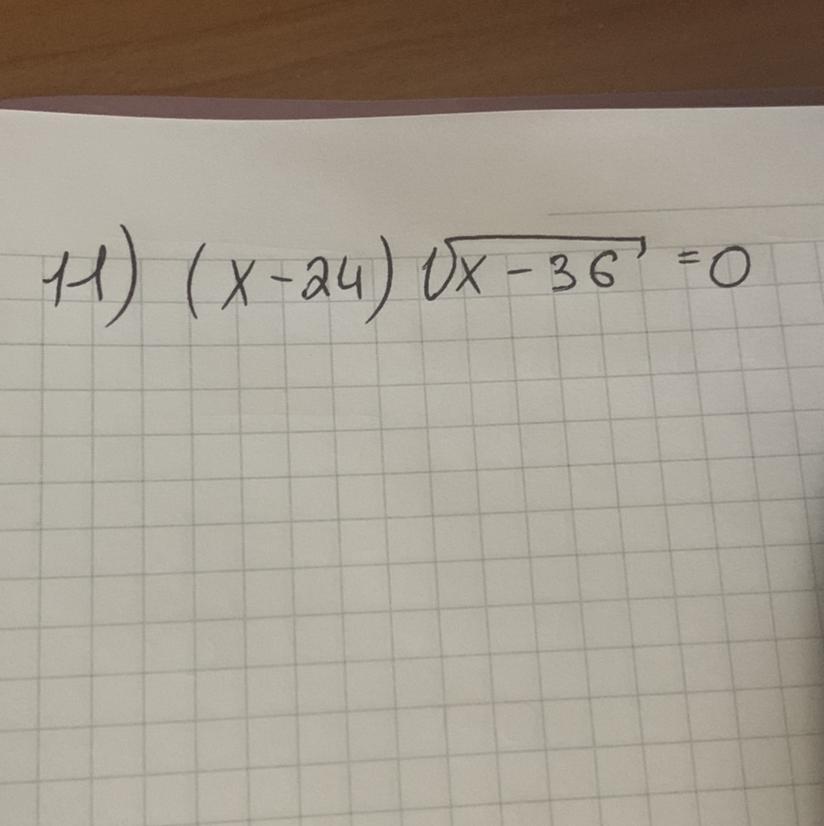 11) (x-24) √(x-36) =0